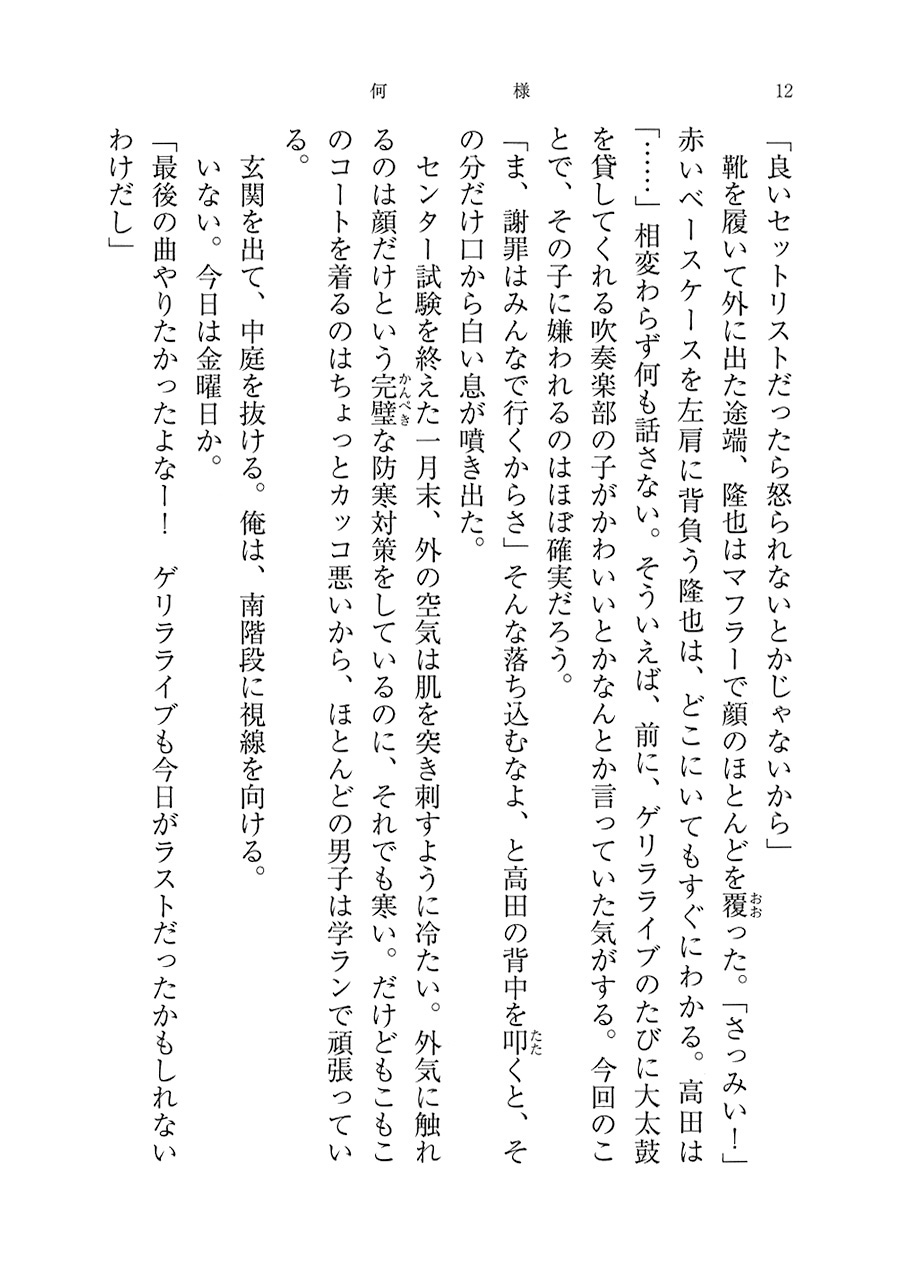 12
何様
「良いセットリストだったら怒られないとかじゃないから」
靴を履いて外に出た途端、隆也はマフラーで顔のほとんどを覆った。「さっみい！」
おお
赤いベースケースを左肩に背負う隆也は、どこにいてもすぐにわかる。高田は
「……」相変わらず何も話さない。そういえば、前に、ゲリラライブのたびに大太鼓
を貸してくれる吹奏楽部の子がかわいいとかなんとか言っていた気がする。今回のこ
とで、その子に嫌われるのはほぼ確実だろう。
「ま、謝罪はみんなで行くからさ」そんな落ち込むなよ、と高田の背中を叩くと、そ
たた
の分だけ口から白い息が噴き出た。
センター試験を終えた一月末、外の空気は肌を突き刺すように冷たい。外気に触れ
るのは顔だけという完璧な防寒対策をしているのに、それでも寒い。だけどもこもこ
かんぺき
のコートを着るのはちょっとカッコ悪いから、ほとんどの男子は学ランで頑張ってい
る。
玄関を出て、中庭を抜ける。俺は、南階段に視線を向ける。
いない。今日は金曜日か。
「最後の曲やりたかったよなー！　ゲリラライブも今日がラストだったかもしれない
わけだし」